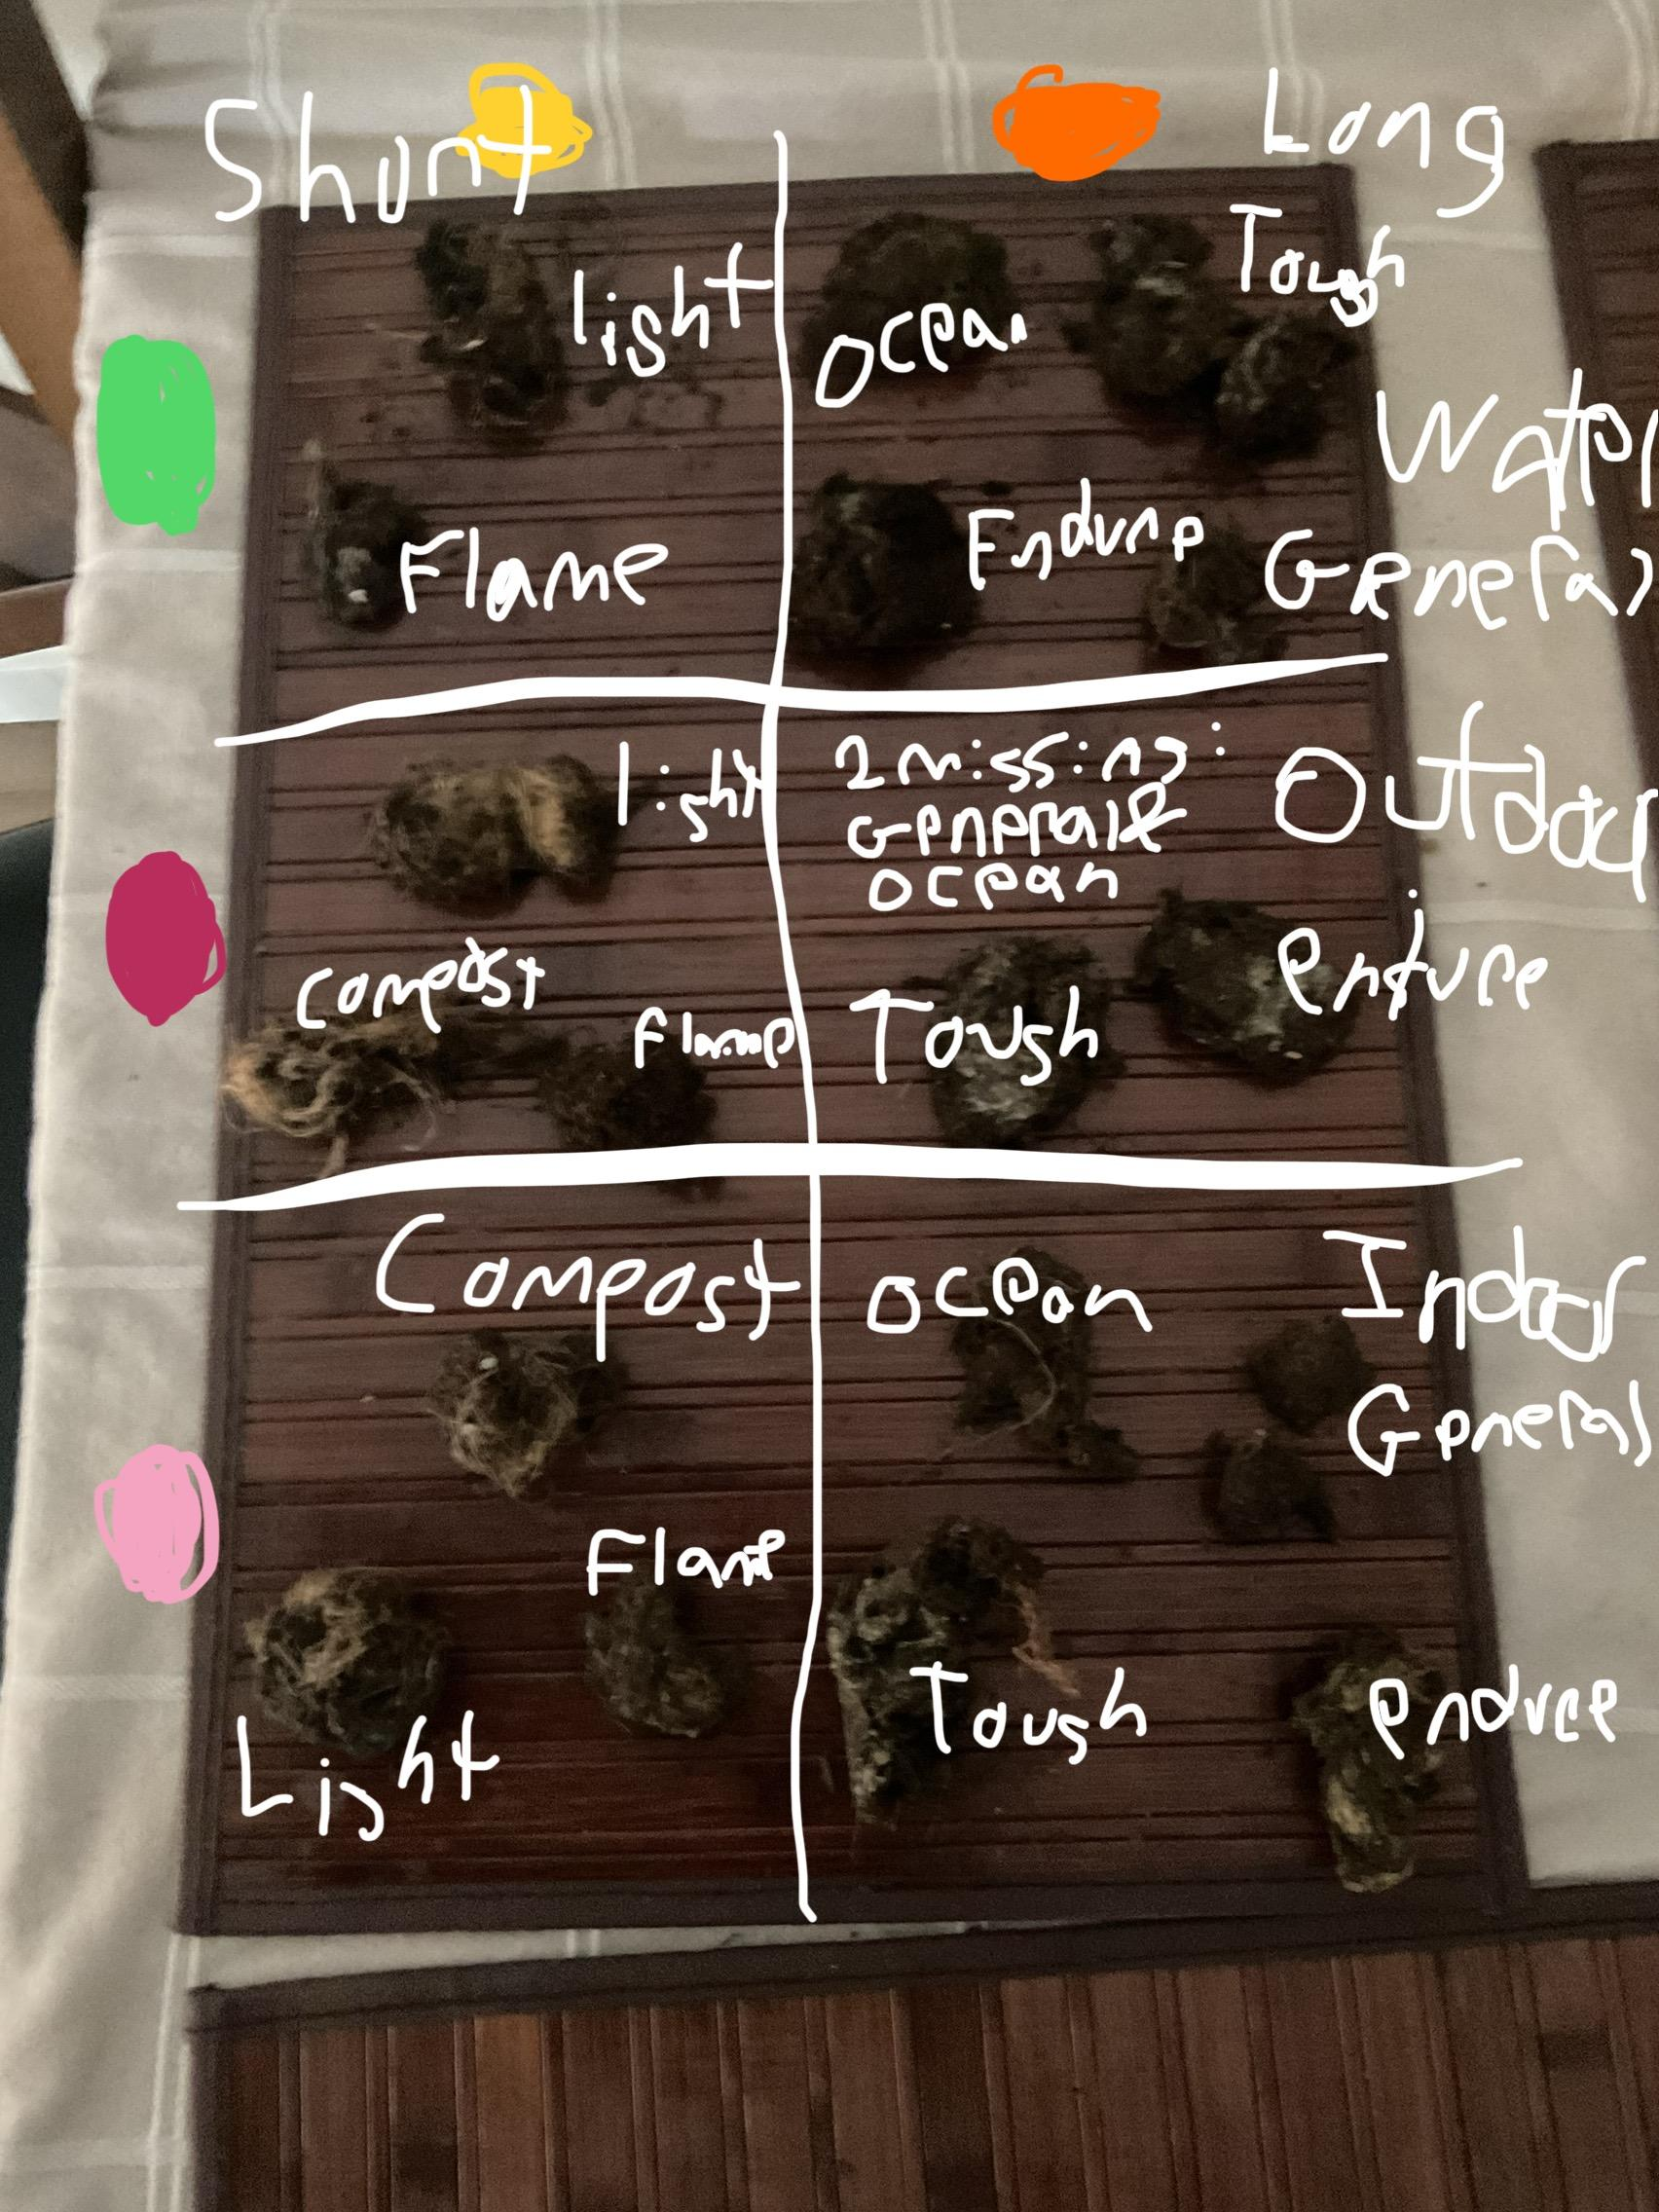 Shont
Long
light
Ocean
Tough
Water
Flame
Endure
General
light
2 missing:
General &
ocean
Outdoor
compost
Flame
Tough
endure
Compost
Ocean
Indoor
General
Flame
Light
Tough
endure